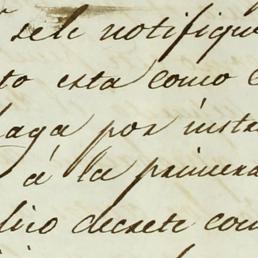 se le notifiqu
to esta como
haga por instr
á la primera
decrete con